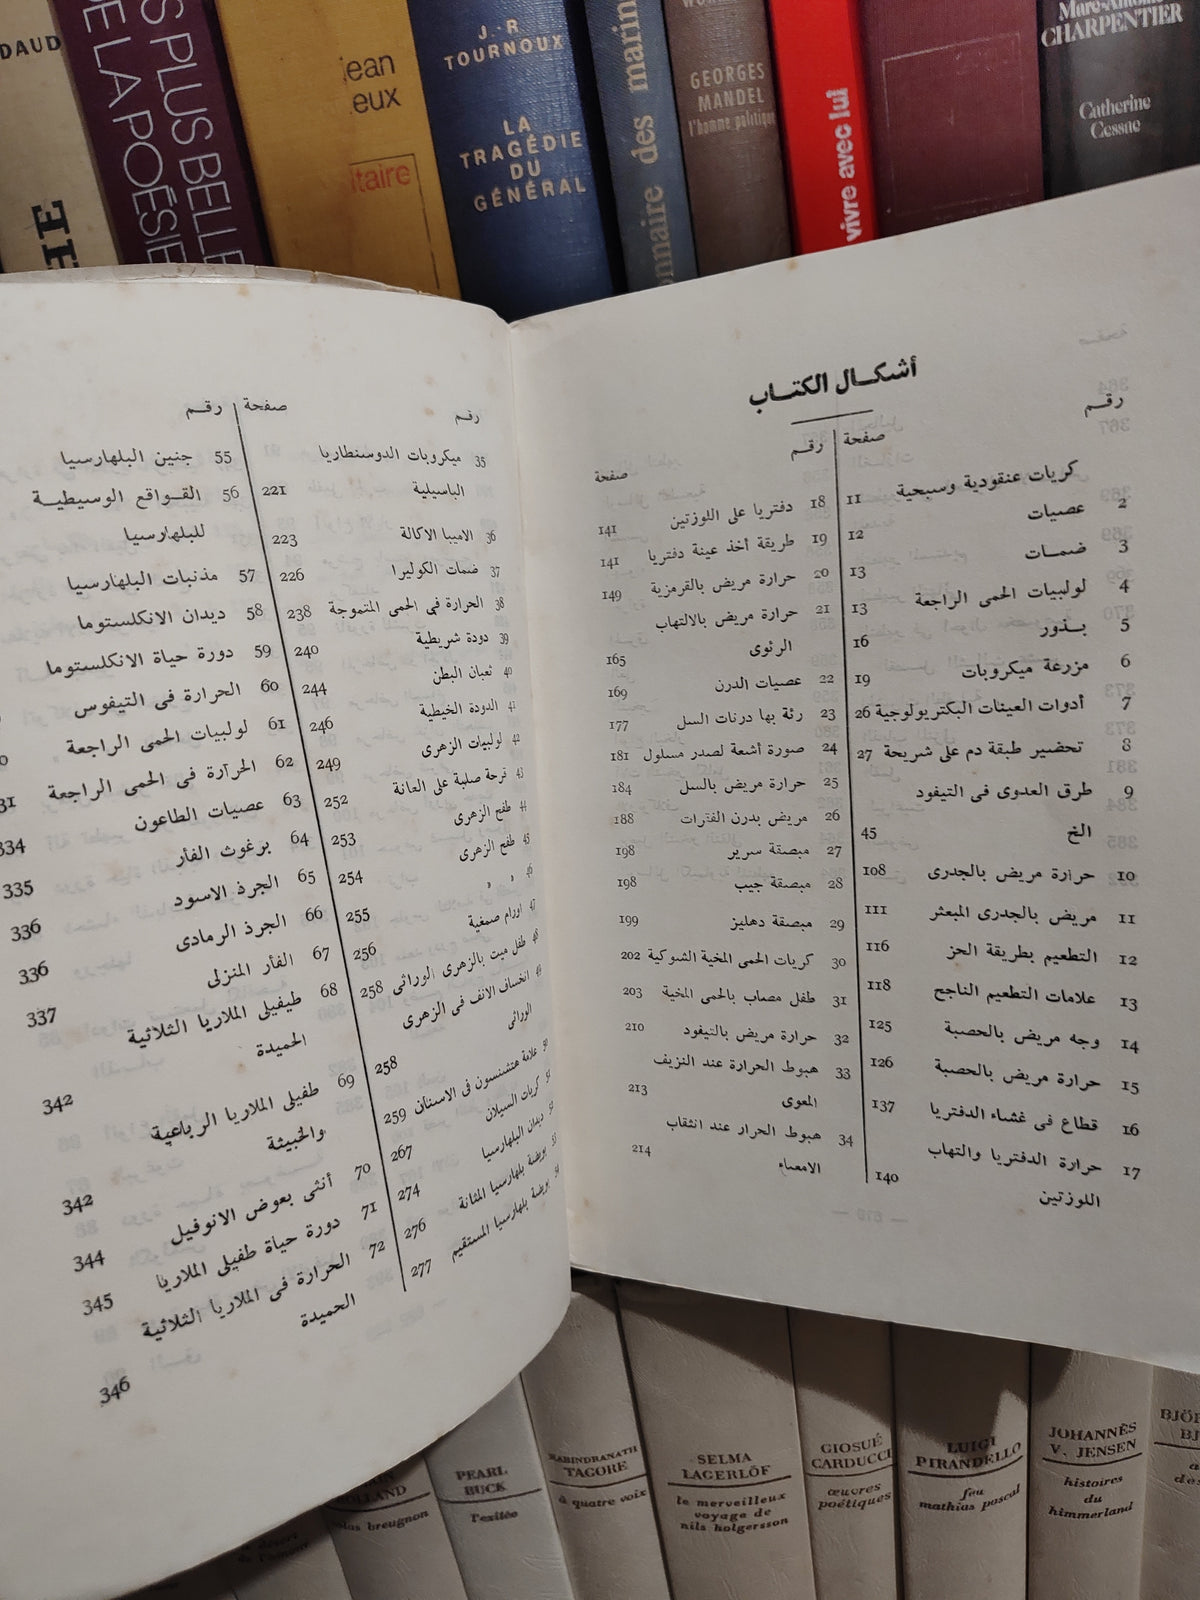 DAUD
HE
S PLUS BELLE
DE LA POÉSIE
jean
eux
itaire
J.-R
TOURNOUX
LA
TRAGÉDIE
DU
GÉNÉRAL
nnaire des marin
GEORGES
MANDEL
l'homme politique
vivre avec lui
Marc-Antoine
CHARPENTIER
Catherine
Cessac
أشكال الكتاب
رقم صفحة
كريات عنقودية وسبحية 11
2 عصيات 12
3 ضمات 13
4 لولبيات الحمى الراجعة 13
5 بذور 16
6 مزرعة ميكروبات 19
7 أدوات العينات البكتريولوجية 26
8 تحضير طبقة دم على شريحة 27
9 طرق العدوى فى التيفود
الخ 45
10 حرارة مريض بالجدرى 108
11 مريض بالجدرى المبعثر 111
12 التطعيم بطريقة الحز 116
13 علامات التطعيم الناجح 118
14 وجه مريض بالحصبة 125
15 حرارة مريض بالحصبة 126
16 قطاع فى غشاء الدفتريا 137
17 حرارة الدفتريا والتهاب
اللوزتين 140
رقم صفحة
18 دفتريا على اللوزتين 141
19 طريقة أخذ عينة دفتريا 141
20 حرارة مريض بالقرمزية 149
21 حرارة مريض بالالتهاب
الرئوى 165
22 عصيات الدرن 169
23 رئة بها درنات السل 177
24 صورة أشعة لصدر مسلول 181
25 حرارة مريض بالسل 184
26 مريض بدرن الفقرات 188
27 مبصقة سرير 198
28 مبصقة جيب 198
29 مبصقة دهليز 199
30 كريات الحمى المخية الشوكية 202
31 طفل مصاب بالحمى المخية 203
32 حرارة مريض بالتيفود 210
33 هبوط الحرارة عند النزيف
المعوى 213
34 هبوط الحرار عند انثقاب
الامعاء 214
رقم صفحة
35 ميكروبات الدوسنطاريا
الباسيلية 221
36 الاميبا الاكالة 223
37 ضمات الكوليرا 226
38 الحرارة فى الحمى المتموجة 238
39 دودة شريطية 240
40 ثعبان البطن 244
41 الدودة الخيطية 246
42 لولبيات الزهرى 249
43 قرحة صلبة على العانة 252
44 طفح الزهرى 253
45 طفح الزهرى 254
46 » » 255
47 اورام صمغية 256
48 طفل ميت بالزهرى الوراثى 258
49 انخساف الانف فى الزهرى
الوراثى 258
50 علامة هتشنسون فى الاسنان 259
51 كريات السيلان 267
52 ديدان البلهارسيا 274
53 بويضة بلهارسيا المثانة 276
54 بويضة بلهارسيا المستقيم 277
رقم
55 جنين البلهارسيا
56 القواقع الوسيطية
للبلهارسيا
57 مذنبات البلهارسيا
58 ديدان الانكلستوما
59 دورة حياة الانكلستوما
60 الحرارة فى التيفوس
61 لولبيات الحمى الراجعة
62 الحرارة فى الحمى الراجعة
63 عصيات الطاعون 334
64 برغوث الفأر 335
65 الجرذ الاسود 336
66 الجرذ الرمادى 336
67 الفأر المنزلى 337
68 طيفيلى الملاريا الثلاثية
الحميدة 342
69 طفيلى الملاريا الرباعية
والخبيثة 342
70 أنثى بعوض الانوفيل 344
71 دورة حياة طفيلى الملاريا 345
72 الحرارة فى الملاريا الثلاثية
الحميدة 346
OLLAND
olas breugnon
PEARL
BUCK
l'exilée
RABINDRANATH
TAGORE
à quatre voix
SELMA
LAGERLÖF
le merveilleux
voyage de
nils holgersson
GIOSUÉ
CARDUCCI
œuvres
poétiques
LUIGI
PIRANDELLO
feu
mathias pascal
JOHANNÈS
V. JENSEN
histoires
du
himmerland